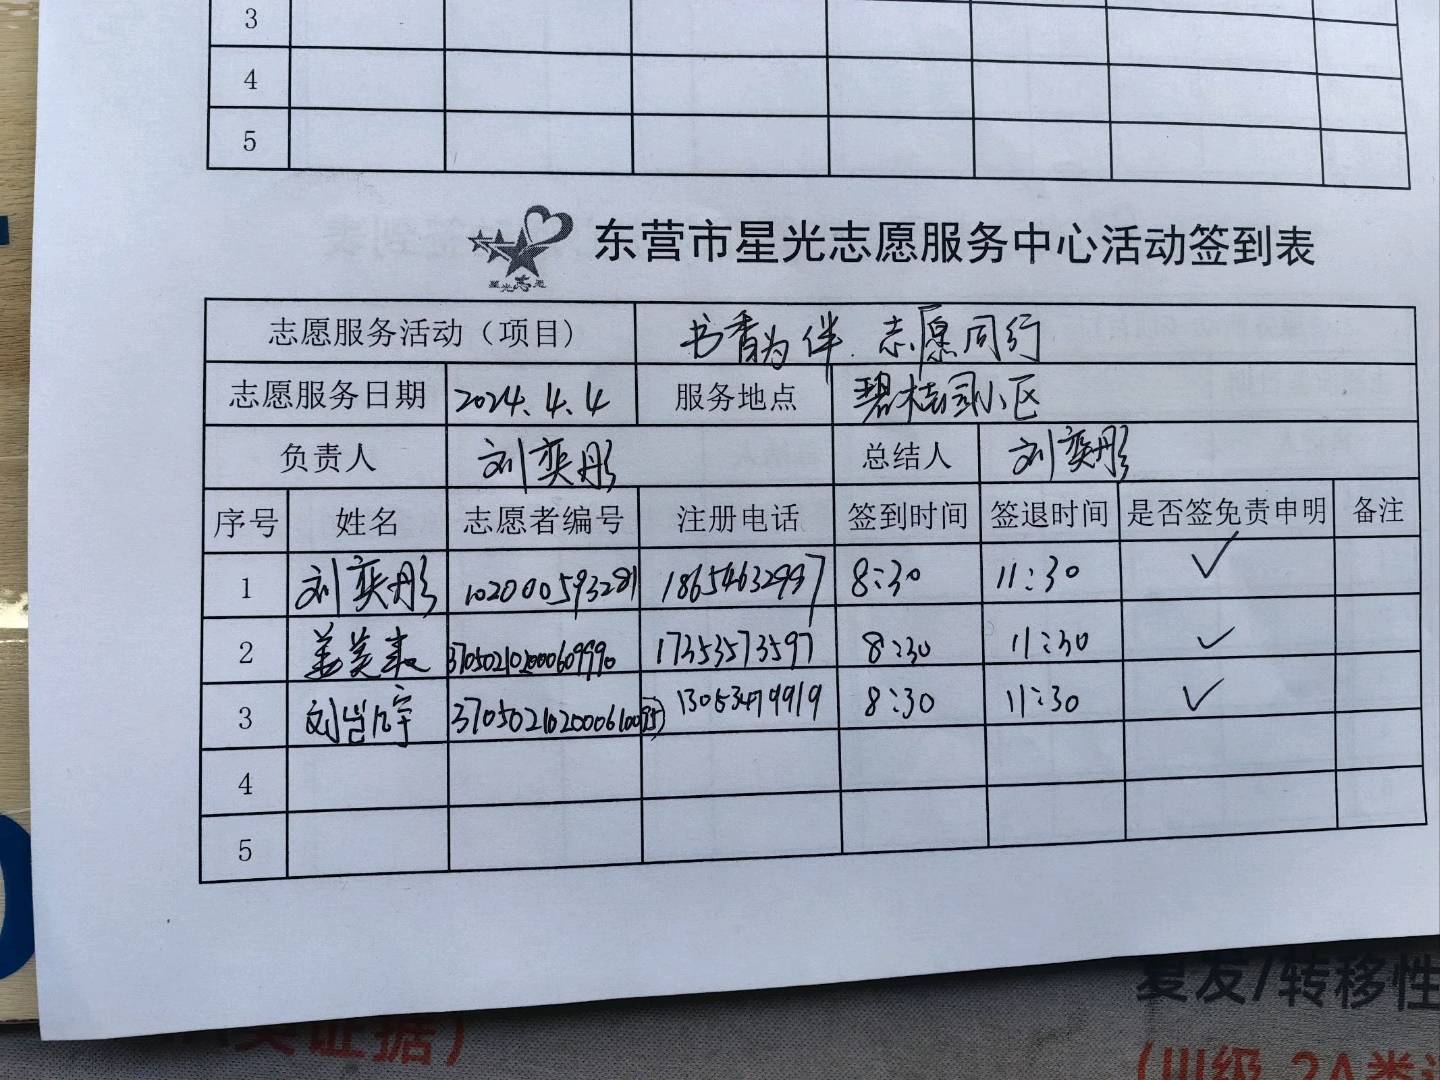 3
4
5
星光志愿
东营市星光志愿服务中心活动签到表
志愿服务活动（项目） 书香为伴 志愿同行
志愿服务日期 2024.4.4 服务地点 碧桂园小区
负责人 刘奕彤 总结人 刘奕彤
序号 姓名 志愿者编号 注册电话 签到时间 签退时间 是否签免责申明 备注
1 刘奕彤 102000593281 18654632997 8:30 11:30 ✓
2 370502102000609990 17353573597 8:30 11:30 ✓
3 刘 宇 8:30 11:30 ✓
4
5
复发/转移性
类证据）